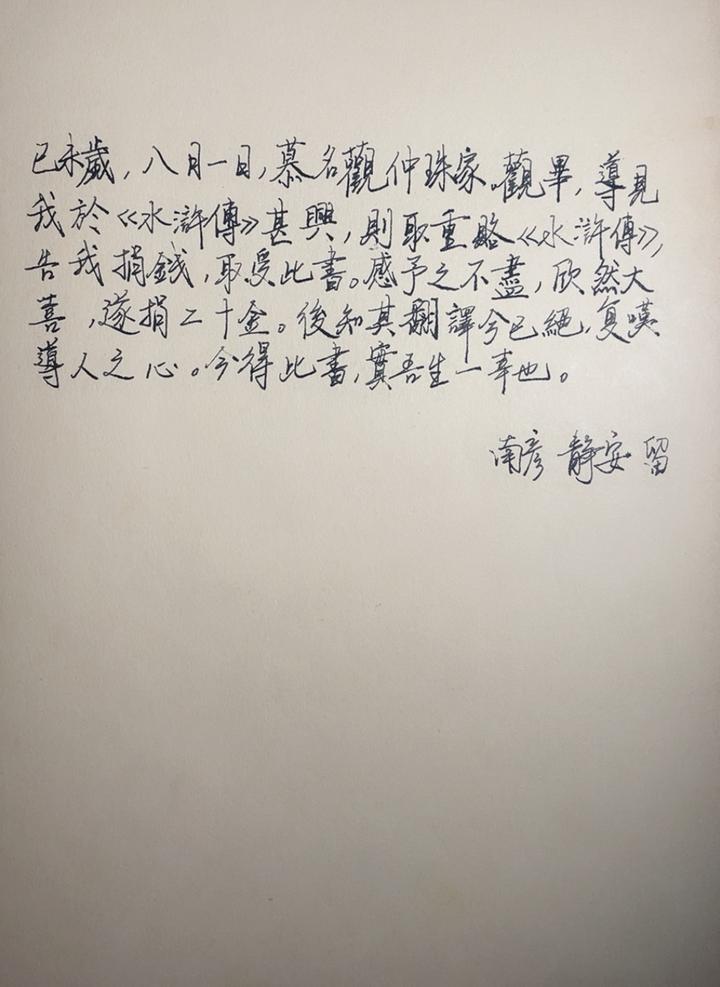 已未歲，八月一日，慕名觀仲珠家。觀畢，導見
我於《水滸傳》甚興，則取重略《水滸傳》，
告我捐錢，取受此書。感予之不盡，欣然大
善，遂捐二十金。後知其翻譯今已絕，复嘆
導人之心。今得此書，實吾生一幸也。
南彦 靜安 留